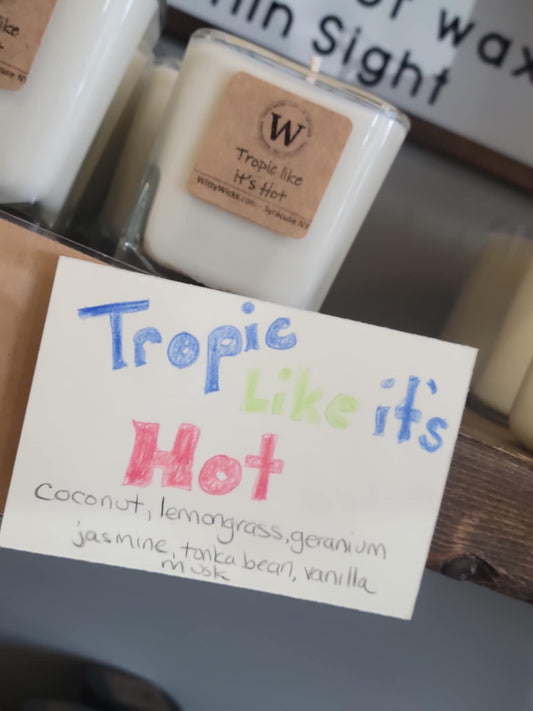 or wax
hin Sight
like
Syracuse NY
W
Tropic like
it's Hot
WittyWicks.com - Syracuse NY
Tropic
Like it's
Hot
coconut, lemongrass, geranium
jasmine, tonka bean, vanilla
musk